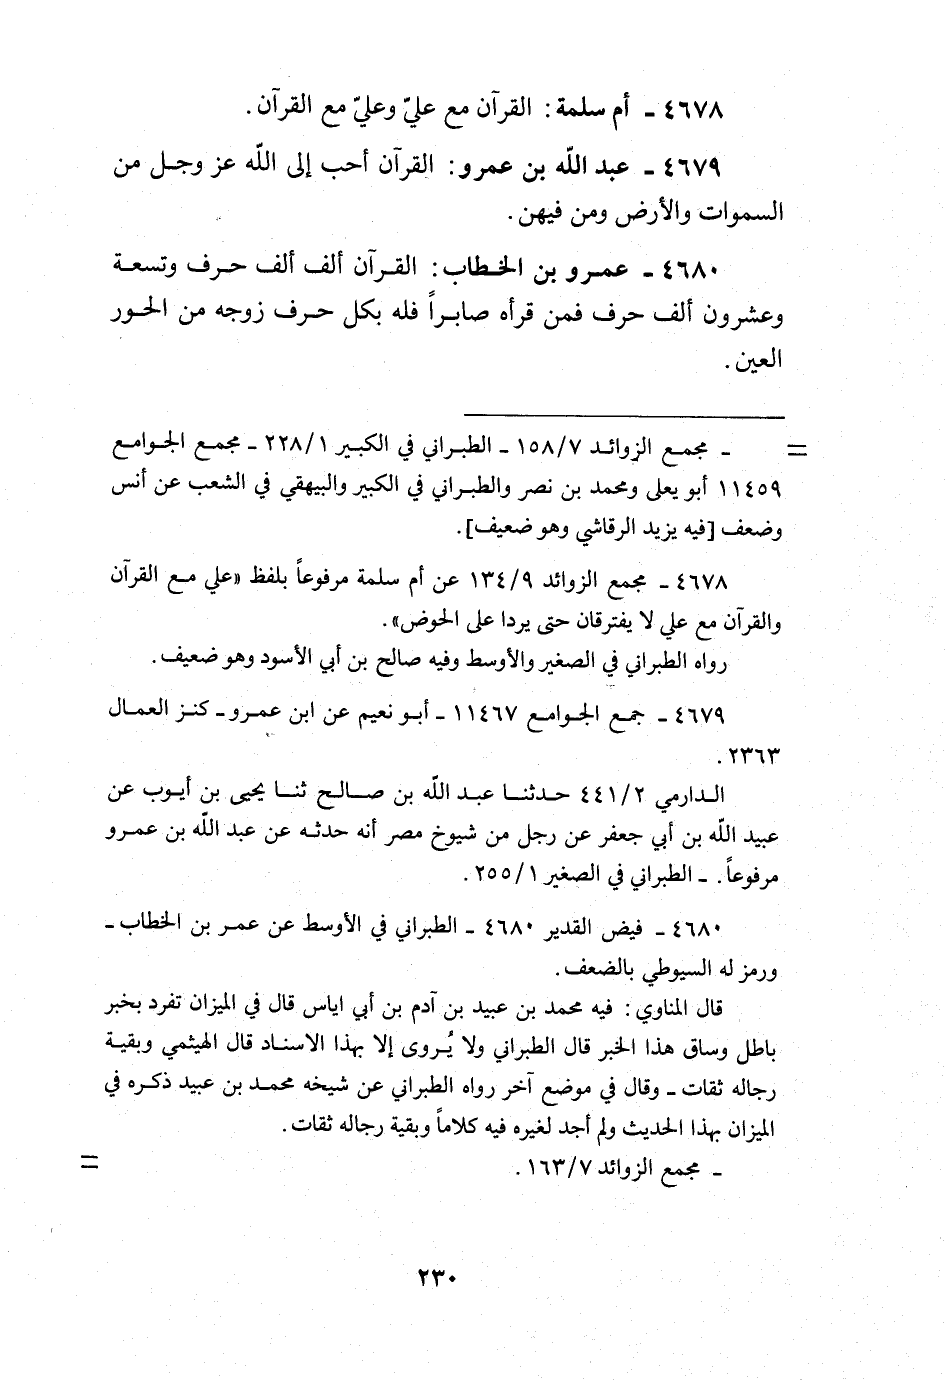 ٤٦٧٨ ـ أم سلمة: القرآن مع عليّ وعليّ مع القرآن.
٤٦٧٩ ـ عبد اللّه بن عمرو: القرآن أحب إلى اللّه عز وجل من
السموات والأرض ومن فيهن.
٤٦٨٠ ـ عمرو بن الخطاب: القرآن ألف ألف حرف وتسعة
وعشرون ألف حرف فمن قرأه صابراً فله بكل حرف زوجه من الحور
العين.
= ـ مجمع الزوائد ١٥٨/٧ ـ الطبراني في الكبير ٢٢٨/١ ـ مجمع الجوامع
١١٤٥٩ أبو يعلى ومحمد بن نصر والطبراني في الكبير والبيهقي في الشعب عن أنس
وضعف [فيه يزيد الرقاشي وهو ضعيف].
٤٦٧٨ ـ مجمع الزوائد ١٣٤/٩ عن أم سلمة مرفوعاً بلفظ «علي مع القرآن
والقرآن مع علي لا يفترقان حتى يردا على الحوض».
رواه الطبراني في الصغير والأوسط وفيه صالح بن أبي الأسود وهو ضعيف.
٤٦٧٩ ـ جمع الجوامع ١١٤٦٧ ـ أبو نعيم عن ابن عمرو ـ كنز العمال
٢٣٦٣.
الدارمي ٤٤١/٢ حدثنا عبد اللّه بن صالح ثنا يحيى بن أيوب عن
عبيد اللّه بن أبي جعفر عن رجل من شيوخ مصر أنه حدثه عن عبد اللّه بن عمرو
مرفوعاً. ـ الطبراني في الصغير ٢٥٥/١.
٤٦٨٠ ـ فيض القدير ٤٦٨٠ ـ الطبراني في الأوسط عن عمر بن الخطاب ـ
ورمز له السيوطي بالضعف.
قال المناوي: فيه محمد بن عبيد بن آدم بن أبي اياس قال في الميزان تفرد بخبر
باطل وساق هذا الخبر قال الطبراني ولا يُروى إلا بهذا الاسناد قال الهيثمي وبقية
رجاله ثقات ـ وقال في موضع آخر رواه الطبراني عن شيخه محمد بن عبيد ذكره في
الميزان بهذا الحديث ولم أجد لغيره فيه كلاماً وبقية رجاله ثقات.
ـ مجمع الزوائد ١٦٣/٧. =
٢٣٠